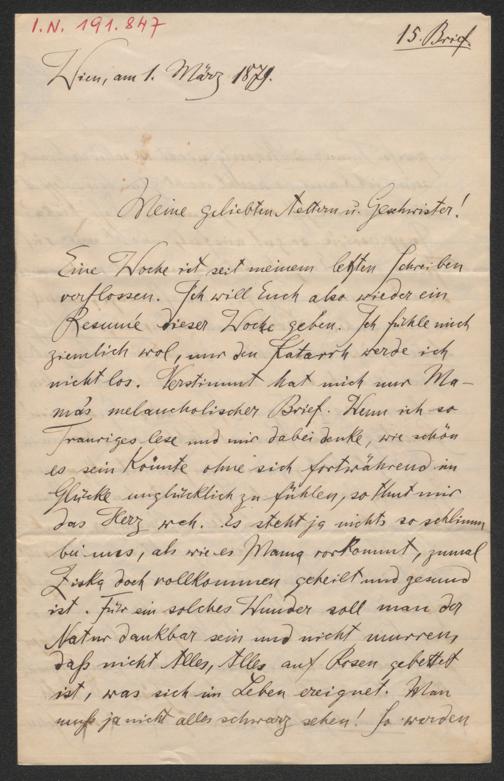 I.N. 191.847
15. Brief.
Wien, am 1. März 1879.
Meine geliebten Aeltern u. Geschwister!
Eine Woche ist seit meinem letzten Schreiben
verflossen. Ich will Euch also wieder ein
Resumé dieser Woche geben. Ich fühle mich
ziemlich wol, nur den Katarrh werde ich
nicht los. Verstimmt hat mich nur Ma-
mas melancholischer Brief. Wenn ich so
Trauriges lese und mir dabei denke, wie schön
es sein könnte ohne sich fortwährend im
Glücke unglücklich zu fühlen, so thut mir
das Herz weh. Es steht ja nichts so schlimm
bei uns, als wie es Mama vorkommt, zumal
Ziska doch vollkommen geheilt und gesund
ist. Für ein solches Wunder soll man der
Natur dankbar sein und nicht murren,
daß nicht Alles, Alles auf Rosen gebettet
ist, was sich im Leben ereignet. Man
muß ja nicht alles schwarz sehen! So werden